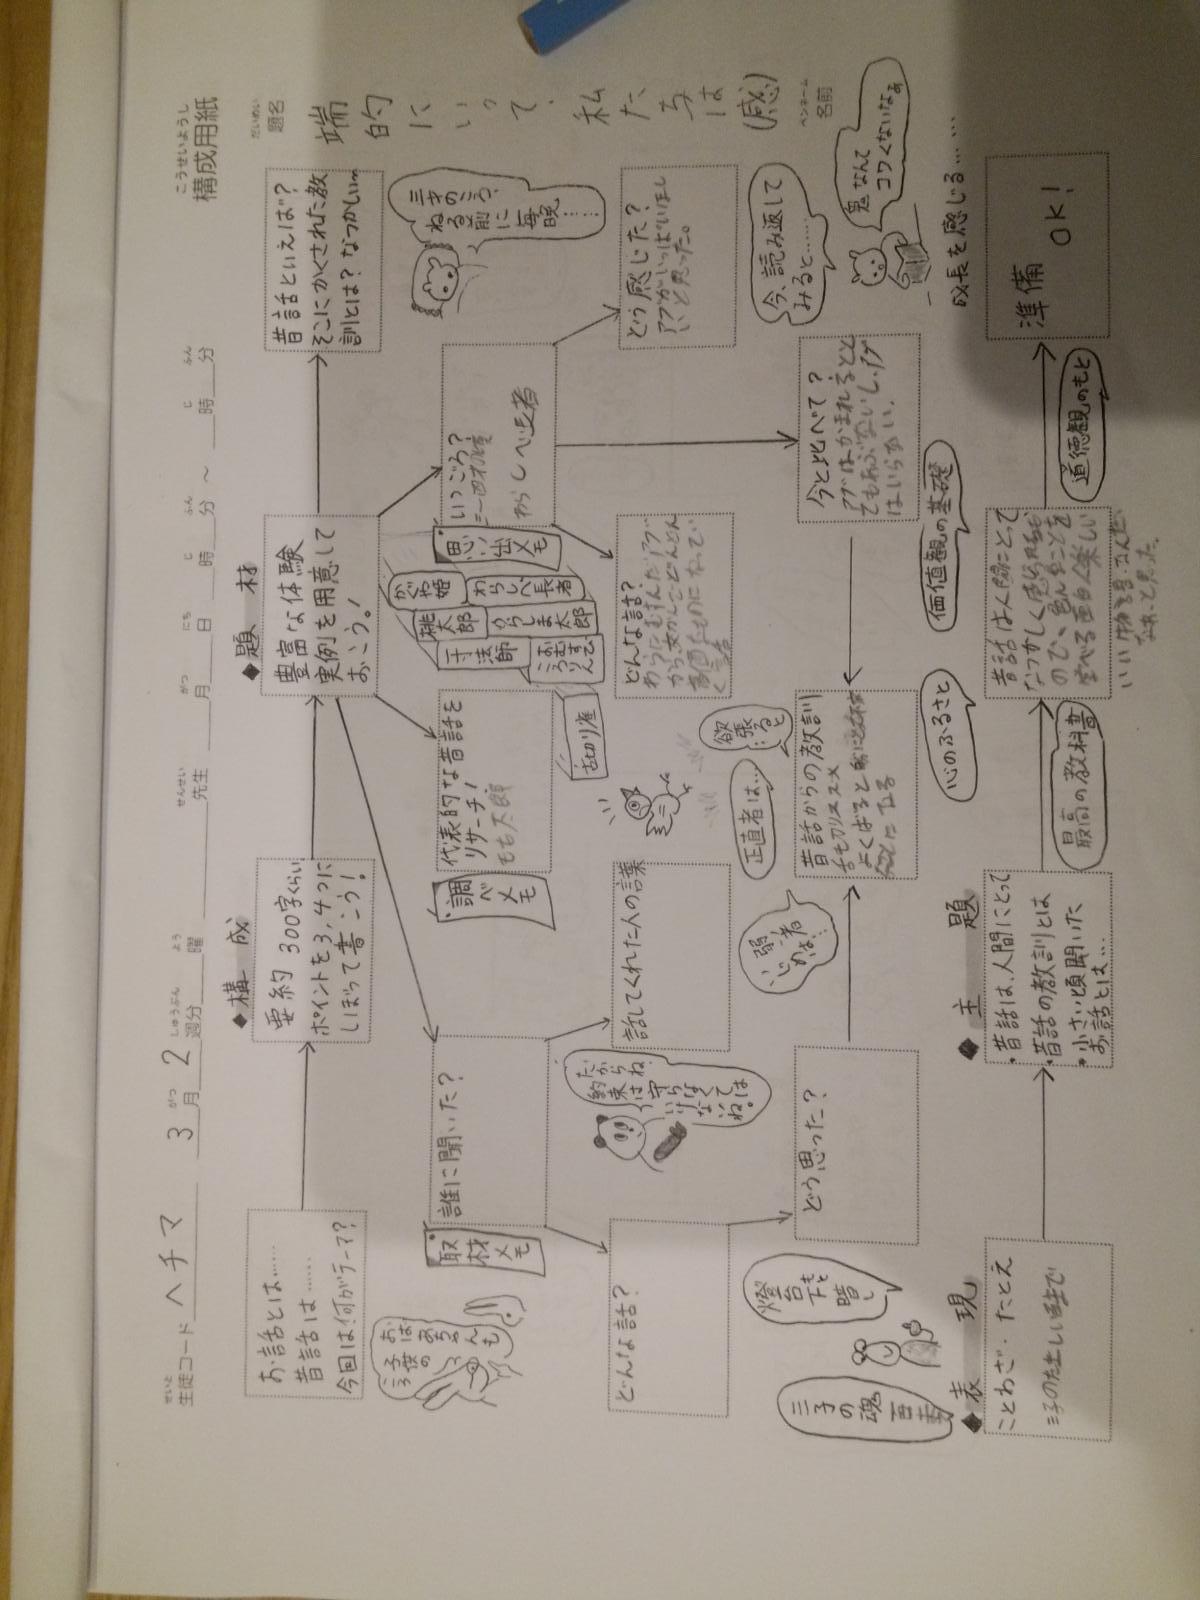 こうせいようし
構成用紙
せいと
生徒コード ヘチマ 3月 2週分 曜 先生 月 日 時 分 ～ 時 分
がつ しゅうぶん よう せんせい がつ にち じ ふん じ ふん
だいめい
題名
端的にいって、私たちは(感)
ペンネーム
名前
◆構成
◆題材
お話とは……
昔話は……
今回は何がテーマ?
要約 300字くらい
ポイントを3,4つに
しぼって書こう!
豊富な体験
実例を用意して
おこう!
昔話といえば?
そこにかくされた教
訓とは?なつかしい〜
おばあちゃんも
子供の
ころ
取材メモ
誰に聞いた?
調べメモ
代表的な昔話を
リサーチ!
もも太郎
思い出メモ
いつごろ?
わらしべ長者
三才のころ、
ねる前に
毎晩
……
かぐや姫
わらしべ長者
桃太郎
うらしま太郎
一寸法師
おむすび
ころりん
舌切り雀
どんな話?
だからね
約束は
守らなくては
いけないね。
話してくれた人の言葉
どんな話?
わらにむすんだアブ
から交かんしてどんどん
高価なものになってい
く
どう感じた?
アブがいっぱいほし
いと思った。
三子の魂百まで
燈台下暗し
どう思った?
弱い者
いじめは…
正直者は…
欲張ると…
昔話からの教訓
今と比べて?
アブはかまれるとと
てもあぶないし、アブ
はいらない。
今、読み返して
みると……
鬼なんて
コワくないなぁ
成長を感じる……
◆表現
◆主題
心のふるさと
価値観の基礎
ことわざ・たとえ
・昔話は、人間にとって
・昔話の教訓とは
・小さい頃聞いた
お話とは…
最高の教科書
昔話はく人間にとって
なつかしく感じる
道徳観のもと
準備
OK!